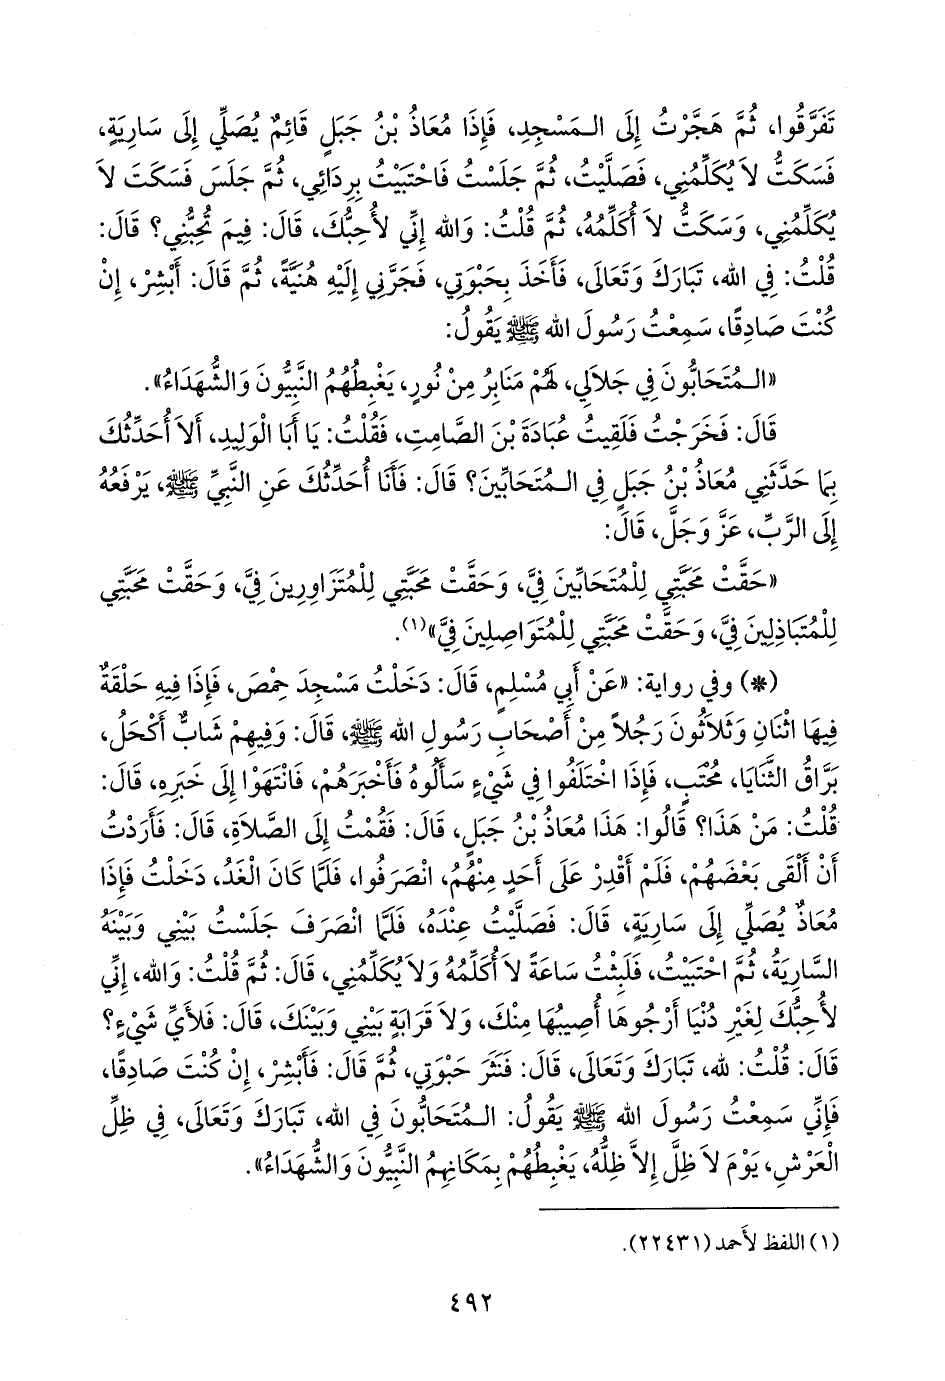 تَفَرَّقُوا، ثُمَّ هَجَّرْتُ إِلَى الْمَسْجِدِ، فَإِذَا مُعَاذُ بْنُ جَبَلٍ قَائِمٌ يُصَلِّي إِلَى سَارِيَةٍ،
فَسَكَتُّ لاَ يُكَلِّمُنِي، فَصَلَّيْتُ، ثُمَّ جَلَسْتُ فَاحْتَبَيْتُ بِرِدَائِي، ثُمَّ جَلَسَ فَسَكَتَ لاَ
يُكَلِّمُنِي، وَسَكَتُّ لاَ أُكَلِّمُهُ، ثُمَّ قُلْتُ: وَالله إِنِّي لأُحِبُّكَ، قَالَ: فِيمَ تُحِبُّنِي؟ قَالَ:
قُلْتُ: فِي الله، تَبَارَكَ وَتَعَالَى، فَأَخَذَ بِحَبْوَتِي، فَجَرَّنِي إِلَيْهِ هُنَيَّةً، ثُمَّ قَالَ: أَبْشِرْ، إِنْ
كُنْتَ صَادِقًا، سَمِعْتُ رَسُولَ الله ﷺ يَقُولُ:
«الْمُتَحَابُّونَ فِي جَلاَلِي، لَهُمْ مَنَابِرُ مِنْ نُورٍ، يَغْبِطُهُمُ النَّبِيُّونَ وَالشُّهَدَاءُ».
قَالَ: فَخَرَجْتُ فَلَقِيتُ عُبَادَةَ بْنَ الصَّامِتِ، فَقُلْتُ: يَا أَبَا الْوَلِيدِ، أَلاَ أُحَدِّثُكَ
بِمَا حَدَّثَنِي مُعَاذُ بْنُ جَبَلٍ فِي الْمُتَحَابِّينَ؟ قَالَ: فَأَنَا أُحَدِّثُكَ عَنِ النَّبِيِّ ﷺ، يَرْفَعُهُ
إِلَى الرَّبِّ، عَزَّ وَجَلَّ، قَالَ:
«حَقَّتْ مَحَبَّتِي لِلْمُتَحَابِّينَ فِيَّ، وَحَقَّتْ مَحَبَّتِي لِلْمُتَزَاوِرِينَ فِيَّ، وَحَقَّتْ مَحَبَّتِي
لِلْمُتَبَاذِلِينَ فِيَّ، وَحَقَّتْ مَحَبَّتِي لِلْمُتَوَاصِلِينَ فِيَّ»(١).
(*) وفي رواية: «عَنْ أَبِي مُسْلِمٍ، قَالَ: دَخَلْتُ مَسْجِدَ حِمْصَ، فَإِذَا فِيهِ حَلْقَةٌ
فِيهَا اثْنَانِ وَثَلاَثُونَ رَجُلاً مِنْ أَصْحَابِ رَسُولِ الله ﷺ، قَالَ: وَفِيهِمْ شَابٌّ أَكْحَلُ،
بَرَّاقُ الثَّنَايَا، مُحْتَبٍ، فَإِذَا اخْتَلَفُوا فِي شَيْءٍ سَأَلُوهُ فَأَخْبَرَهُمْ، فَانْتَهَوْا إِلَى خَبَرِهِ، قَالَ:
قُلْتُ: مَنْ هَذَا؟ قَالُوا: هَذَا مُعَاذُ بْنُ جَبَلٍ، قَالَ: فَقُمْتُ إِلَى الصَّلاَةِ، قَالَ: فَأَرَدْتُ
أَنْ أَلْقَى بَعْضَهُمْ، فَلَمْ أَقْدِرْ عَلَى أَحَدٍ مِنْهُمُ، انْصَرَفُوا، فَلَمَّا كَانَ الْغَدُ، دَخَلْتُ فَإِذَا
مُعَاذٌ يُصَلِّي إِلَى سَارِيَةٍ، قَالَ: فَصَلَّيْتُ عِنْدَهُ، فَلَمَّا انْصَرَفَ جَلَسْتُ بَيْنِي وَبَيْنَهُ
السَّارِيَةُ، ثُمَّ احْتَبَيْتُ، فَلَبِثْتُ سَاعَةً لاَ أُكَلِّمُهُ وَلاَ يُكَلِّمُنِي، قَالَ: ثُمَّ قُلْتُ: وَالله، إِنِّي
لأُحِبُّكَ لِغَيْرِ دُنْيَا أَرْجُوهَا أُصِيبُهَا مِنْكَ، وَلاَ قَرَابَةٍ بَيْنِي وَبَيْنَكَ، قَالَ: فَلأَيِّ شَيْءٍ؟
قَالَ: قُلْتُ: لله، تَبَارَكَ وَتَعَالَى، قَالَ: فَنَثَرَ حَبْوَتِي، ثُمَّ قَالَ: فَأَبْشِرْ، إِنْ كُنْتَ صَادِقًا،
فَإِنِّي سَمِعْتُ رَسُولَ الله ﷺ يَقُولُ: الْمُتَحَابُّونَ فِي الله، تَبَارَكَ وَتَعَالَى، فِي ظِلِّ
الْعَرْشِ، يَوْمَ لاَ ظِلَّ إِلاَّ ظِلُّهُ، يَغْبِطُهُمْ بِمَكَانِهِمُ النَّبِيُّونَ وَالشُّهَدَاءُ».
(١) اللفظ لأحمد (٢٢٤٣١).
٤٩٢